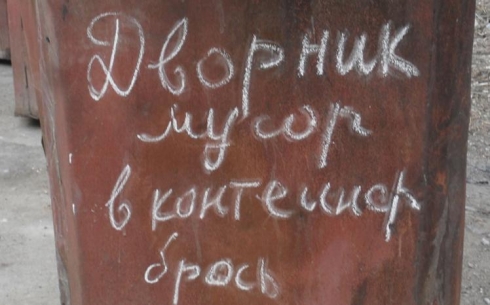 Дворник
мусор
в контейнер
брось